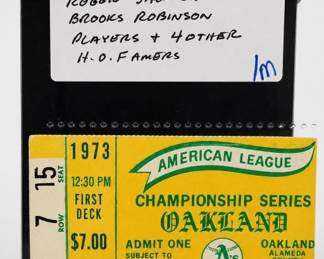 BROOKS ROBINSON
PLAYERS + 4 OTHER
H.O.FAMERS
1m
1973
12:30 PM
FIRST
DECK
$7.00
7 ROW 15 SEAT
AMERICAN LEAGUE
CHAMPIONSHIP SERIES
OAKLAND
ADMIT ONE
SUBJECT TO
A's
OAKLAND
ALAMEDA